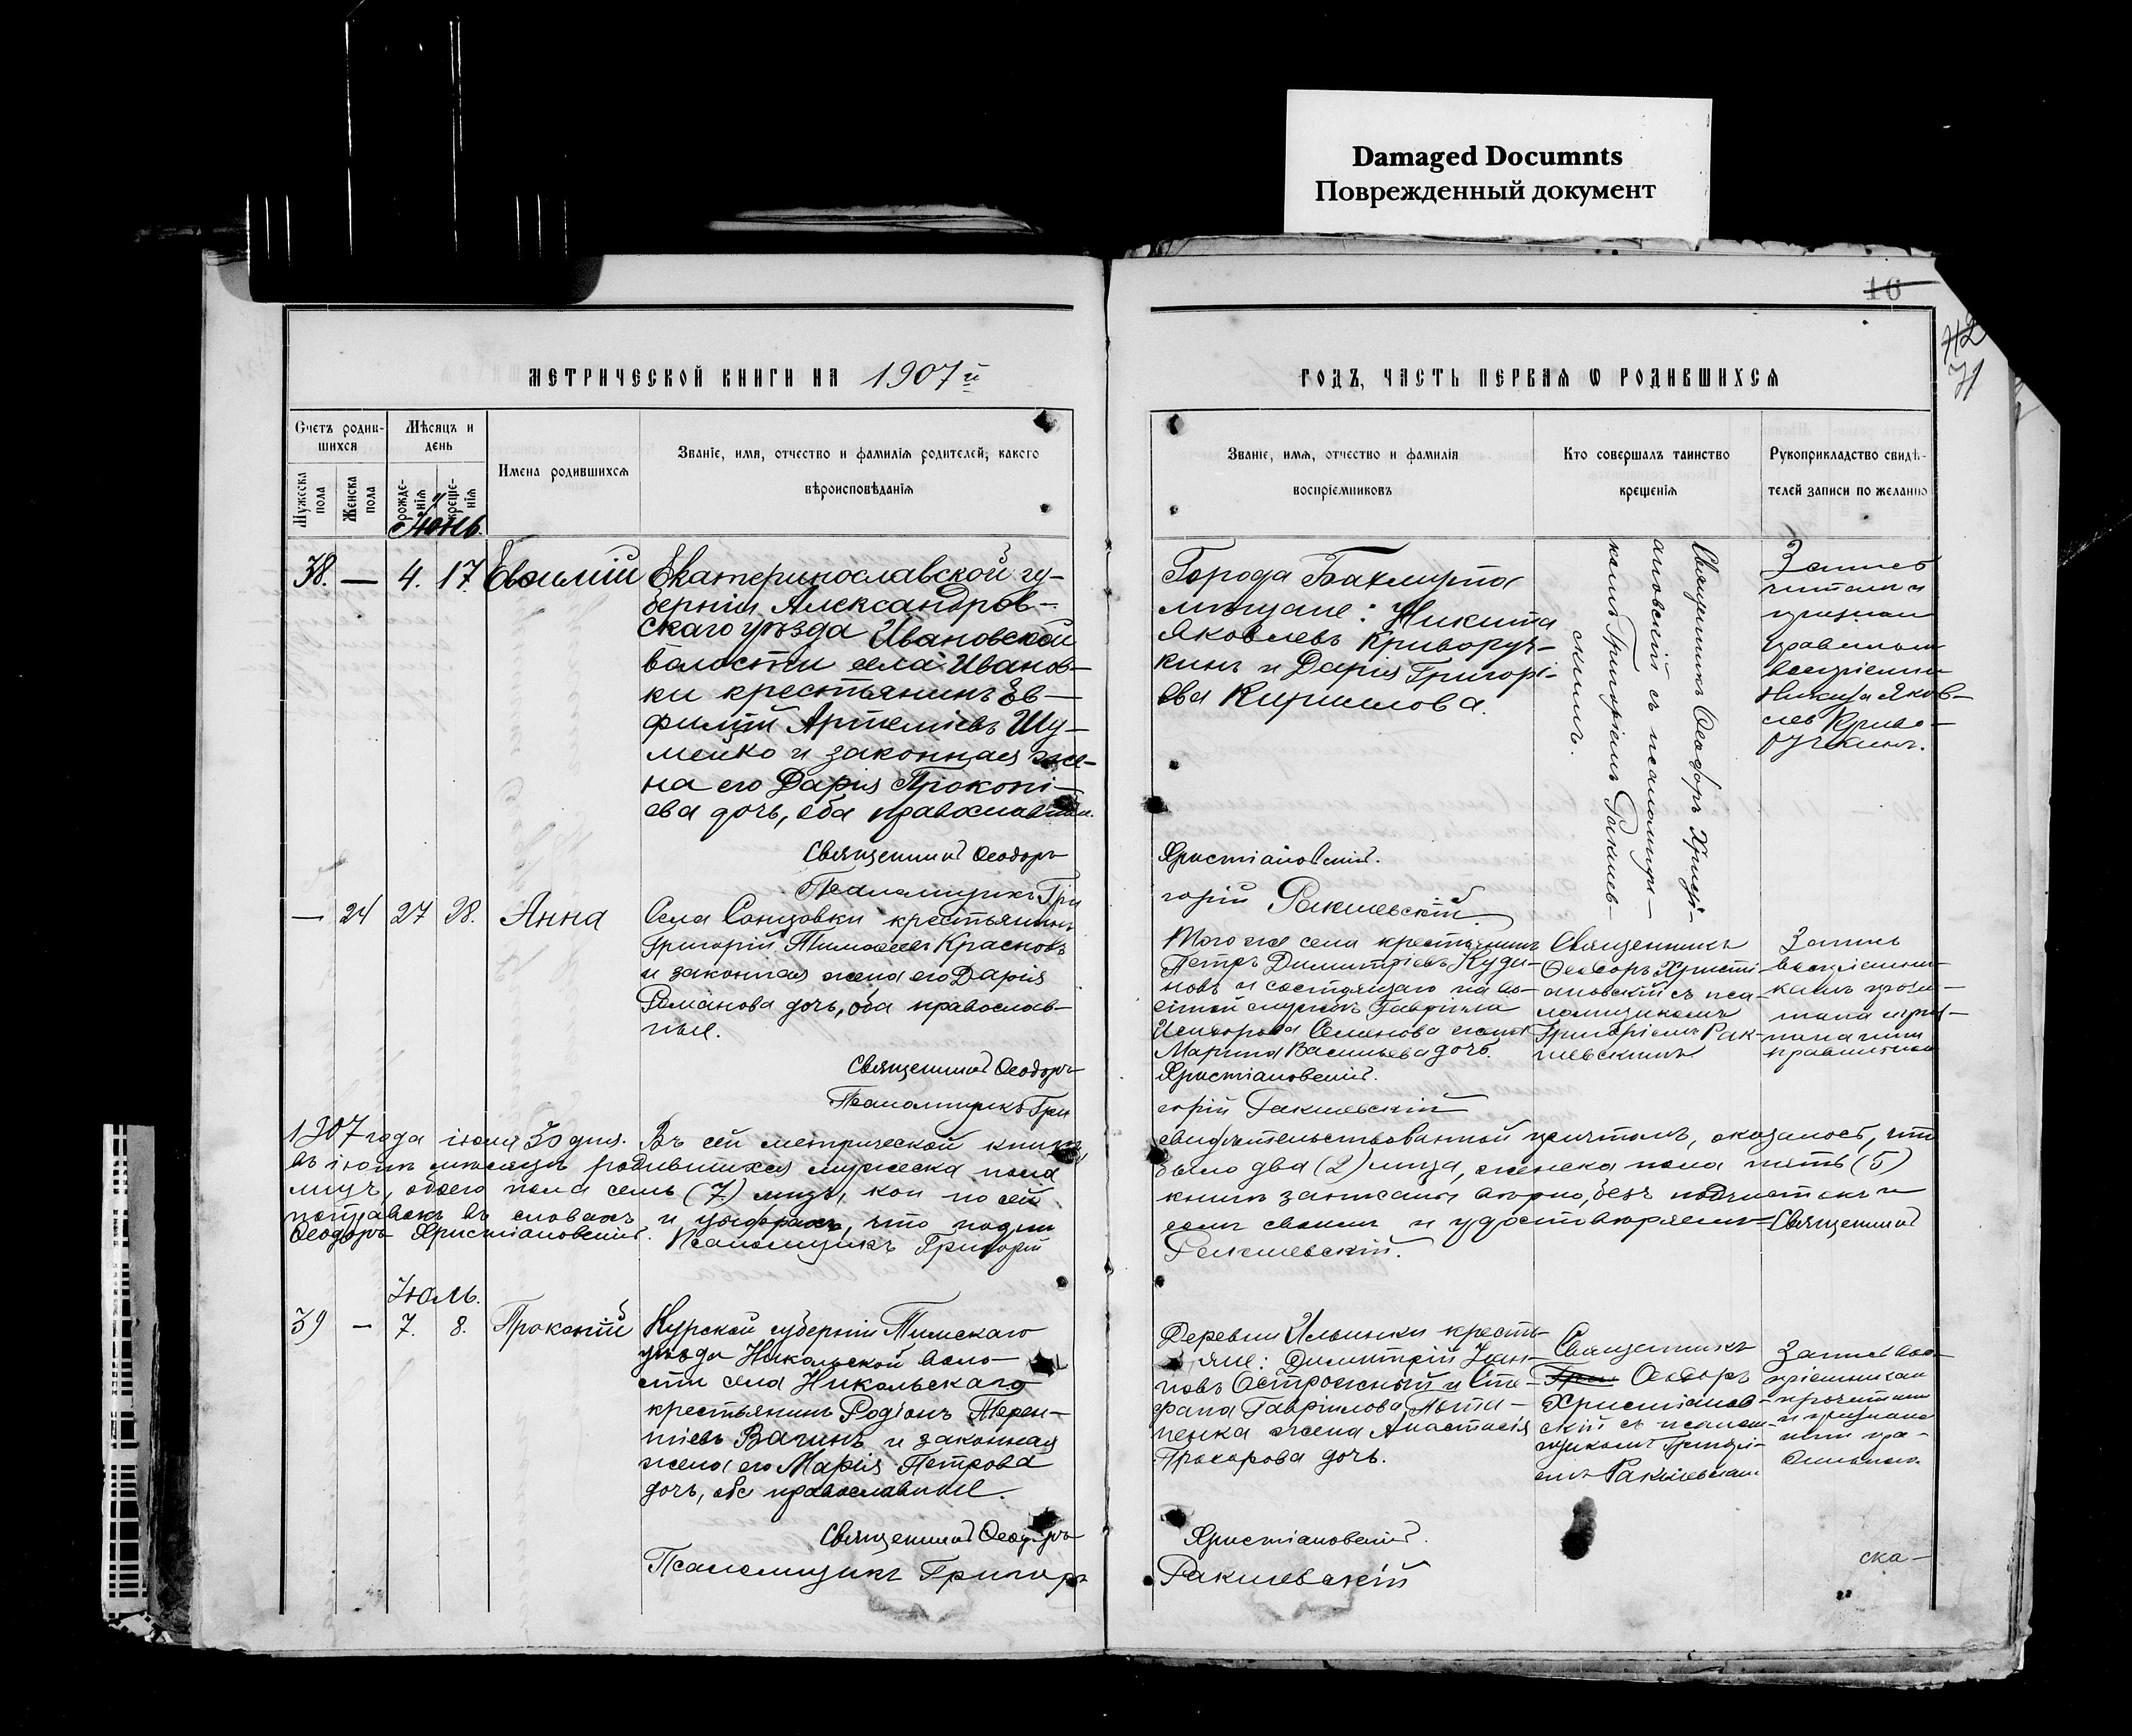 Damaged Documnts
Поврежденный документ
16
42
71
МЕТРИЧЕСКОЙ КНИГИ НА 1907 й
ГОДЪ, ЧАСТЬ ПЕРВАЯ Ѡ РОДИВШИХСЯ
Счетъ родив-
шихся
Мужеска пола
Женска пола
Мѣсяцъ и
день
рожде-
нія
креще-
нія
Имена родившихся
Званіе, имя, отчество и фамилія родителей, какого
вѣроисповѣданія
Званіе, имя, отчество и фамилія
воспріемниковъ
Кто совершалъ таинство
крещенія
Рукоприкладство свидѣ-
телей записи по желанію
Іюнь.
38. — 4. 17.
Екатеринославской гу-
берніи Александров-
скаго уѣзда Ивановской
волости села Иванов-
ки крестьянинъ Ев-
фимій Артеміевъ Шу-
мейко и законная же-
на его Дарія Прокопі-
ева дочь, оба православные.
Города Бахмута
мѣщане: Никита
Яковлевъ Криворуч-
кинъ и Дарія Григорі-
ева Кириллова.
Священникъ Ѳеодоръ Христі-
ановскій съ псаломщи-
комъ Григоріемъ Ракшев-
скимъ.
Запись
читалъ и
призналъ
правильной
воспріемникъ
Никита Яков-
левъ Криво-
ручкинъ.
Священникъ Ѳеодоръ
Христіановскій.
Псаломщикъ Гри
горій Ракшевскій
— 24 27 28. Анна
Села Санцовки крестьянинъ
Григорій Тимоѳеевъ Красновъ
и законная жена его Дарія
Романова дочь, оба православ-
ные.
Того же села крестьянинъ
Петръ Димитріевъ Куди-
новъ и состоящаго на во-
енной службѣ Гавріила
Исидорова Семенова жена
Марина Васильева дочь.
Священникъ
Ѳеодоръ Христі-
ановскій съ пса-
ломщикомъ
Григоріемъ Рак-
шевскимъ
Запись
воспріемни-
камъ
правильной
Священникъ Ѳеодоръ
Христіановскій.
Псаломщикъ Гри
горій Ракшевскій
1907 года іюня 30 дня. Въ сей метрической книгѣ, свидѣтельствованной причтомъ, оказалось, что
въ іюнѣ мѣсяцѣ родившихся мужеска пола было два (2) лица, женска пола пять (5)
лицъ, обоего пола семь (7) лицъ, кои по сей книгѣ записаны вѣрно, безъ подчистокъ и
поправокъ въ словахъ и цыфрахъ, что подпи сомъ своимъ и удостовѣряемъ Священникъ
Ѳеодоръ Христіановскій. Псаломщикъ Григорій Ракшевскій.
Іюль.
39 — 7. 8. Прокопій
Курской губерніи Тимскаго
уѣзда Никольской воло-
сти села Никольскаго
крестьянинъ Родіонъ Терен-
тіевъ Вагинъ и законная
жена его Марія Петрова
дочь, оба православные.
Деревни Ильинки кресть-
яне: Димитрій Іоан-
новъ Острожный и Сте-
фана Гавріилова
жена Анастасія
Прохорова дочь.
Священникъ
Ѳеодоръ
Христіанов-
скій съ псалом-
щикомъ Григорі-
емъ Ракшевским
Запись вос-
пріемникам
прочитана
и признана
ими пра-
вильной.
Священникъ Ѳеодоръ
Христіановскій.
Псаломщикъ Григорій
Ракшевскій
ска-